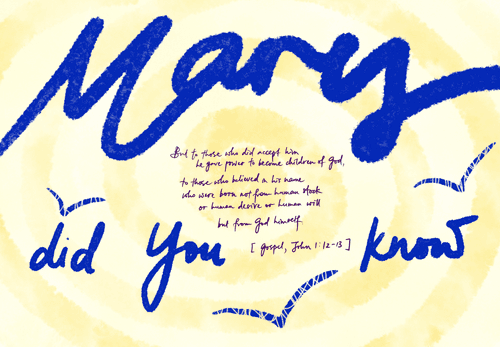 Mary
But to those who did accept him
he gave power to become children of God,
to those who believed in his name
who were born not from human stock
or human desire or human will
but from God himself
[ Gospel, John 1:12-13 ]
did You know